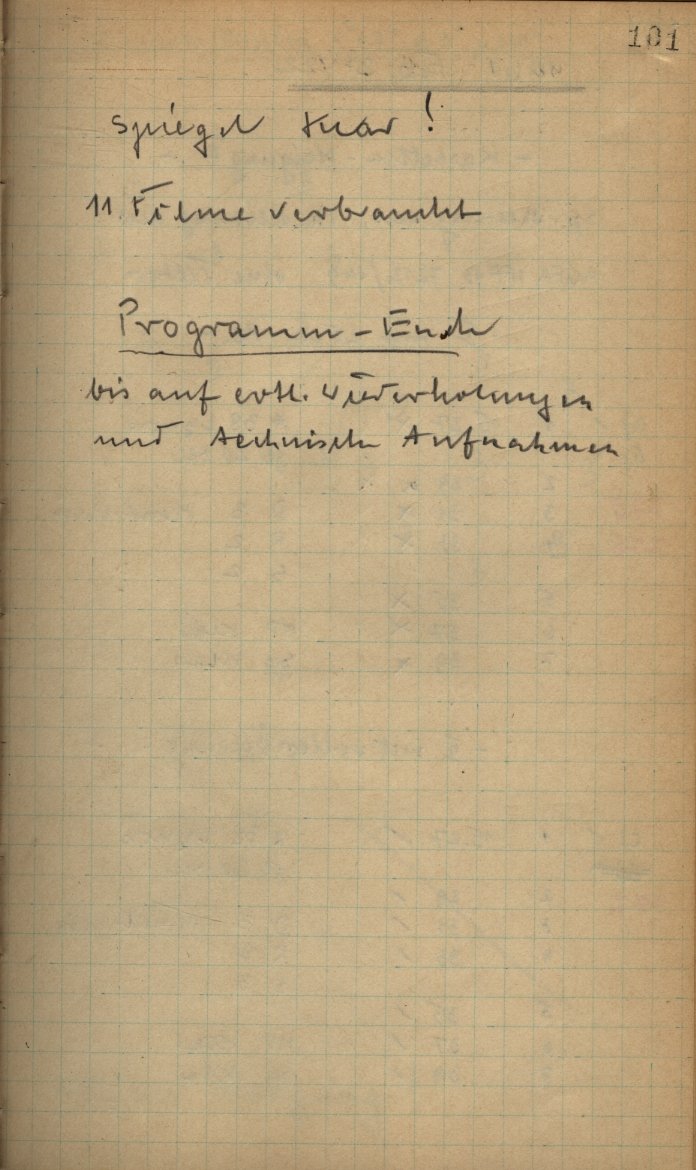 101
Spiegel klar!
11 Filme verbraucht
Programm-Ende
bis auf evtl. Wiederholungen
und technische Aufnahmen